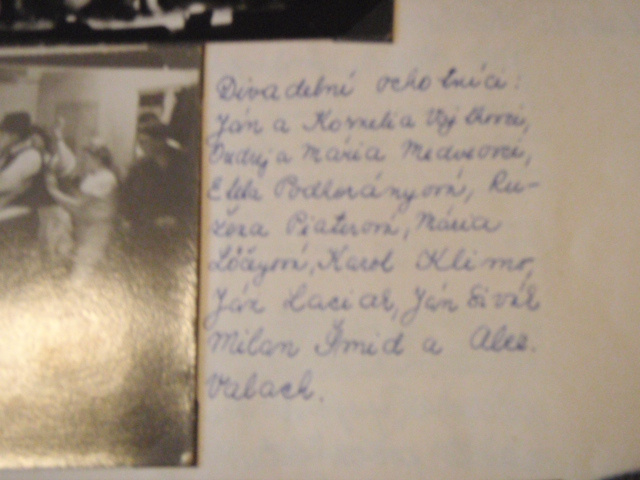 Divadelní ochotníci:
Ján a Kornelia Vojtkovci,
Ondrej a Mária Medveovci,
Etela Podhorányová, Ru-
žena Piaterová, Mária
Lőčyová, Karol Klimo,
Ján Laciak, Ján Sivák
Milan Šmid a Alex.
Valach.